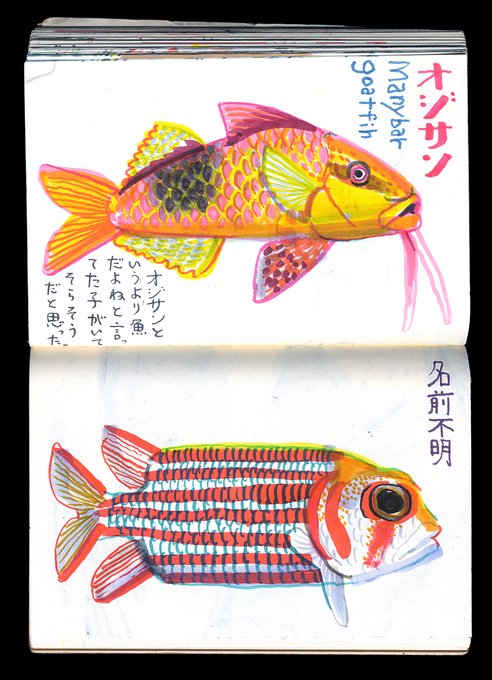 オジサン
Manybar
goatfih
オジサンと
いうより魚
だよねと言っ
てた子がいて
そらそう
だと思った。
名前不明